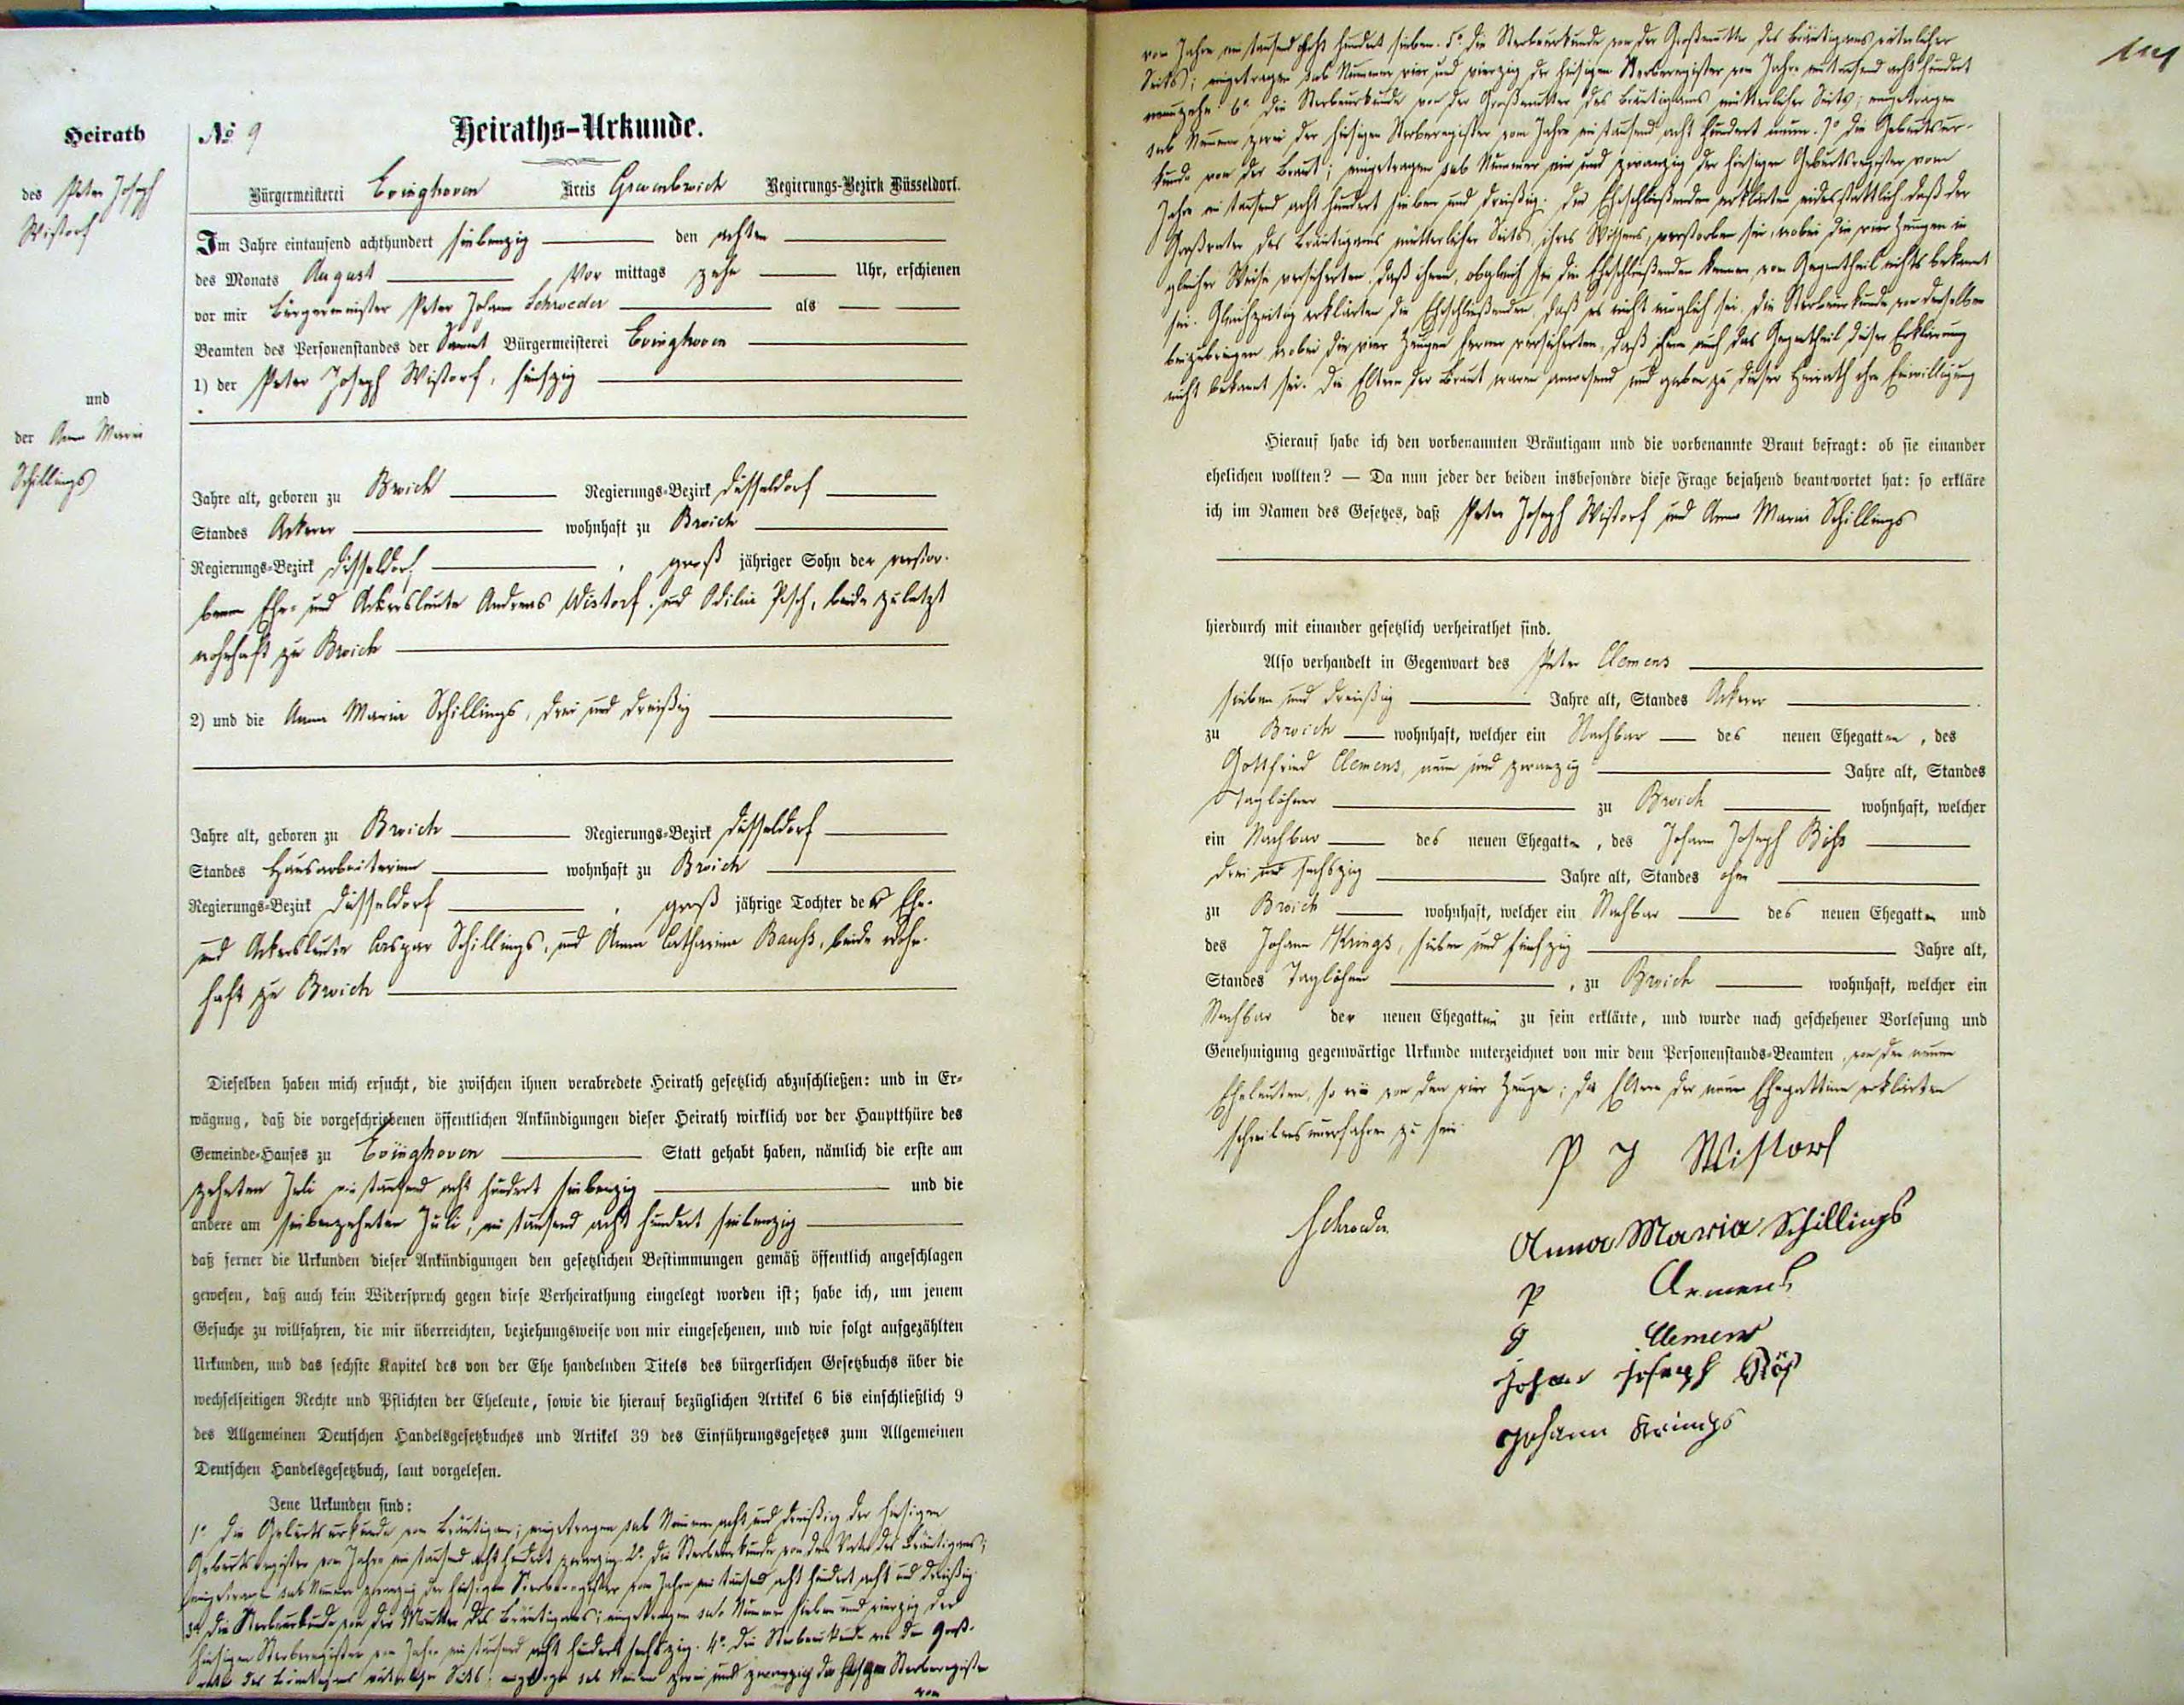 Heirath
des Peter Joseph
Wistorf
und
der Anna Maria
Schillings
No. 9
Heiraths-Urkunde.
Bürgermeisterei Evinghoven Kreis Grevenbroich Regierungs-Bezirk Düsseldorf.
Im Jahre eintausend achthundert siebenzig den achten
des Monats August Vor mittags zehn Uhr, erschienen
vor mir Bürgermeister Peter Johann Schroeder als
Beamten des Personenstandes der Sammt Bürgermeisterei Evinghoven
1) der Peter Joseph Wistorf, fünfzig
Jahre alt, geboren zu Broich Regierungs-Bezirk Düsseldorf
Standes Ackerer wohnhaft zu Broich
Regierungs-Bezirk Düsseldorf, groß jähriger Sohn der verstor-
benen Ehe- und Ackersleute Andreas Wistorf und Odilia Pesch, beide zuletzt
wohnhaft zu Broich
2) und die Anna Maria Schillings, drei und dreißig
Jahre alt, geboren zu Broich Regierungs-Bezirk Düsseldorf
Standes Hausarbeiterinn wohnhaft zu Broich
Regierungs-Bezirk Düsseldorf, groß jährige Tochter der Ehe-
und Ackersleute Caspar Schillings, und Anna Catharina Bauß, beide wohn-
haft zu Broich
Dieselben haben mich ersucht, die zwischen ihnen verabredete Heirath gesetzlich abzuschließen: und in Er-
wägung, daß die vorgeschriebenen öffentlichen Ankündigungen dieser Heirath wirklich vor der Hauptthüre des
Gemeinde-Hauses zu Evinghoven Statt gehabt haben, nämlich die erste am
zehnten Juli eintausend acht hundert siebenzig und die
andere am siebenzehnten Juli, eintausend acht hundert siebenzig
daß ferner die Urkunden dieser Ankündigungen den gesetzlichen Bestimmungen gemäß öffentlich angeschlagen
gewesen, daß auch kein Widerspruch gegen diese Verheirathung eingelegt worden ist; habe ich, um jenem
Gesuche zu willfahren, die mir überreichten, beziehungsweise von mir eingesehenen, und wie folgt aufgezählten
Urkunden, und das sechste Kapitel des von der Ehe handelnden Titels des bürgerlichen Gesetzbuchs über die
wechselseitigen Rechte und Pflichten der Eheleute, sowie die hierauf bezüglichen Artikel 6 bis einschließlich 9
des Allgemeinen Deutschen Handelsgesetzbuches und Artikel 39 des Einführungsgesetzes zum Allgemeinen
Deutschen Handelsgesetzbuch, laut vorgelesen.
Jene Urkunden sind:
1o die Geburtsurkunde vom Bräutigam; eingetragen sub Nummer acht und dreißig der hiesigen
Geburtsregister vom Jahre eintausend acht hundert zwanzig. 2o die Sterbeurkunde von dem Vater des Bräutigams;
eingetragen sub Nummer zwanzig der hiesigen Sterberegister vom Jahre eintausend acht hundert acht und dreißig.
3o die Sterbeurkunde von der Mutter des Bräutigams; eingetragen sub Nummer sieben und vierzig der
hiesigen Sterberegister vom Jahre eintausend acht hundert sechszig. 4o die Sterbeurkunde von dem Groß-
vater des Bräutigams väterlicher Seits; eingetragen sub Nummer zwei und zwanzig der hiesigen Sterberegister
vom
vom Jahre eintausend acht hundert sieben. 5o die Sterbeurkunde von der Großmutter des Bräutigams väterlicher
Seits; eingetragen sub Nummer vier und vierzig der hiesigen Sterberegister vom Jahre eintausend acht hundert
neunzehn. 6o die Sterbeurkunde von der Großmutter des Bräutigams mütterlicher Seits; eingetragen
sub Nummer zwei der hiesigen Sterberegister vom Jahre eintausend acht hundert neun. 7o die Geburtsur-
kunde von der Braut; eingetragen sub Nummer ein und zwanzig der hiesigen Geburtsregister vom
Jahre eintausend acht hundert sieben und dreißig. Die Eheschließenden erklärten eidesstattlich daß der
Großvater des Bräutigams mütterlicher Seits, ihres Wissens, verstorben sei, wobei die vier Zeugen in
gleicher Weise versicherten, daß ihnen, obgleich sie die Eheschließenden kennen, vom Gegentheil nichts bekannt
sei. Gleichzeitig erklärten die Eheschließenden, daß es nicht möglich sei, die Sterbeurkunde von demselben
beizubringen wobei die vier Zeugen ferner versicherten, daß ihnen auch das Gegentheil dieser Erklärung
nicht bekannt sei. Die Eltern der Braut waren anwesend und gaben zu dieser Heirath ihre Einwilligung
Hierauf habe ich den vorbenannten Bräutigam und die vorbenannte Braut befragt: ob sie einander
ehelichen wollten? — Da nun jeder der beiden insbesondre diese Frage bejahend beantwortet hat: so erkläre
ich im Namen des Gesetzes, daß Peter Joseph Wistorf und Anna Maria Schillings
hierdurch mit einander gesetzlich verheirathet sind.
Also verhandelt in Gegenwart des Peter Clemens
sieben und dreißig Jahre alt, Standes Ackerer
zu Broich wohnhaft, welcher ein Nachbar des neuen Ehegatten, des
Gottfried Clemens, neun und zwanzig Jahre alt, Standes
Taglöhner zu Broich wohnhaft, welcher
ein Nachbar des neuen Ehegatten, des Johann Joseph
drei und sechszig Jahre alt, Standes ohne
zu Broich wohnhaft, welcher ein Nachbar des neuen Ehegatten und
des Johann Krings, sieben und fünfzig Jahre alt,
Standes Taglöhner, zu Broich wohnhaft, welcher ein
Nachbar der neuen Ehegatten zu sein erklärte, und wurde nach geschehener Vorlesung und
Genehmigung gegenwärtige Urkunde unterzeichnet von mir dem Personenstands-Beamten, von den neuen
Eheleuten, so wie von den vier Zeugen; die Eltern der neuen Ehegattinn erklärten
schreibensunerfahren zu sein
P J Wistorf
Schroeder
Anna Maria Schillings
P Clemens
G Clemens
Johann Joseph
Johann Krings